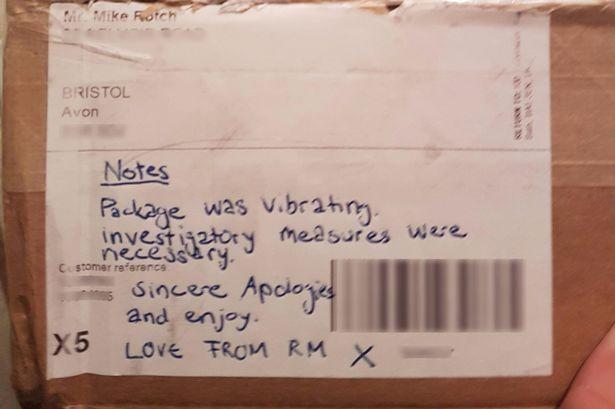 Mr. Mike Rotch
BRISTOL
Avon
Notes
Package was vibrating.
investigatory measures were
necessary.
Customer reference
Sincere Apologies
and enjoy.
X5
LOVE FROM RM X
RETURN TO: